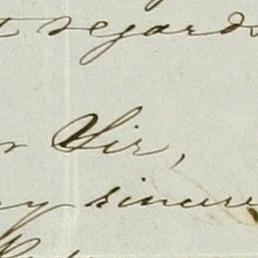 t regards
r Sir,
y sincere